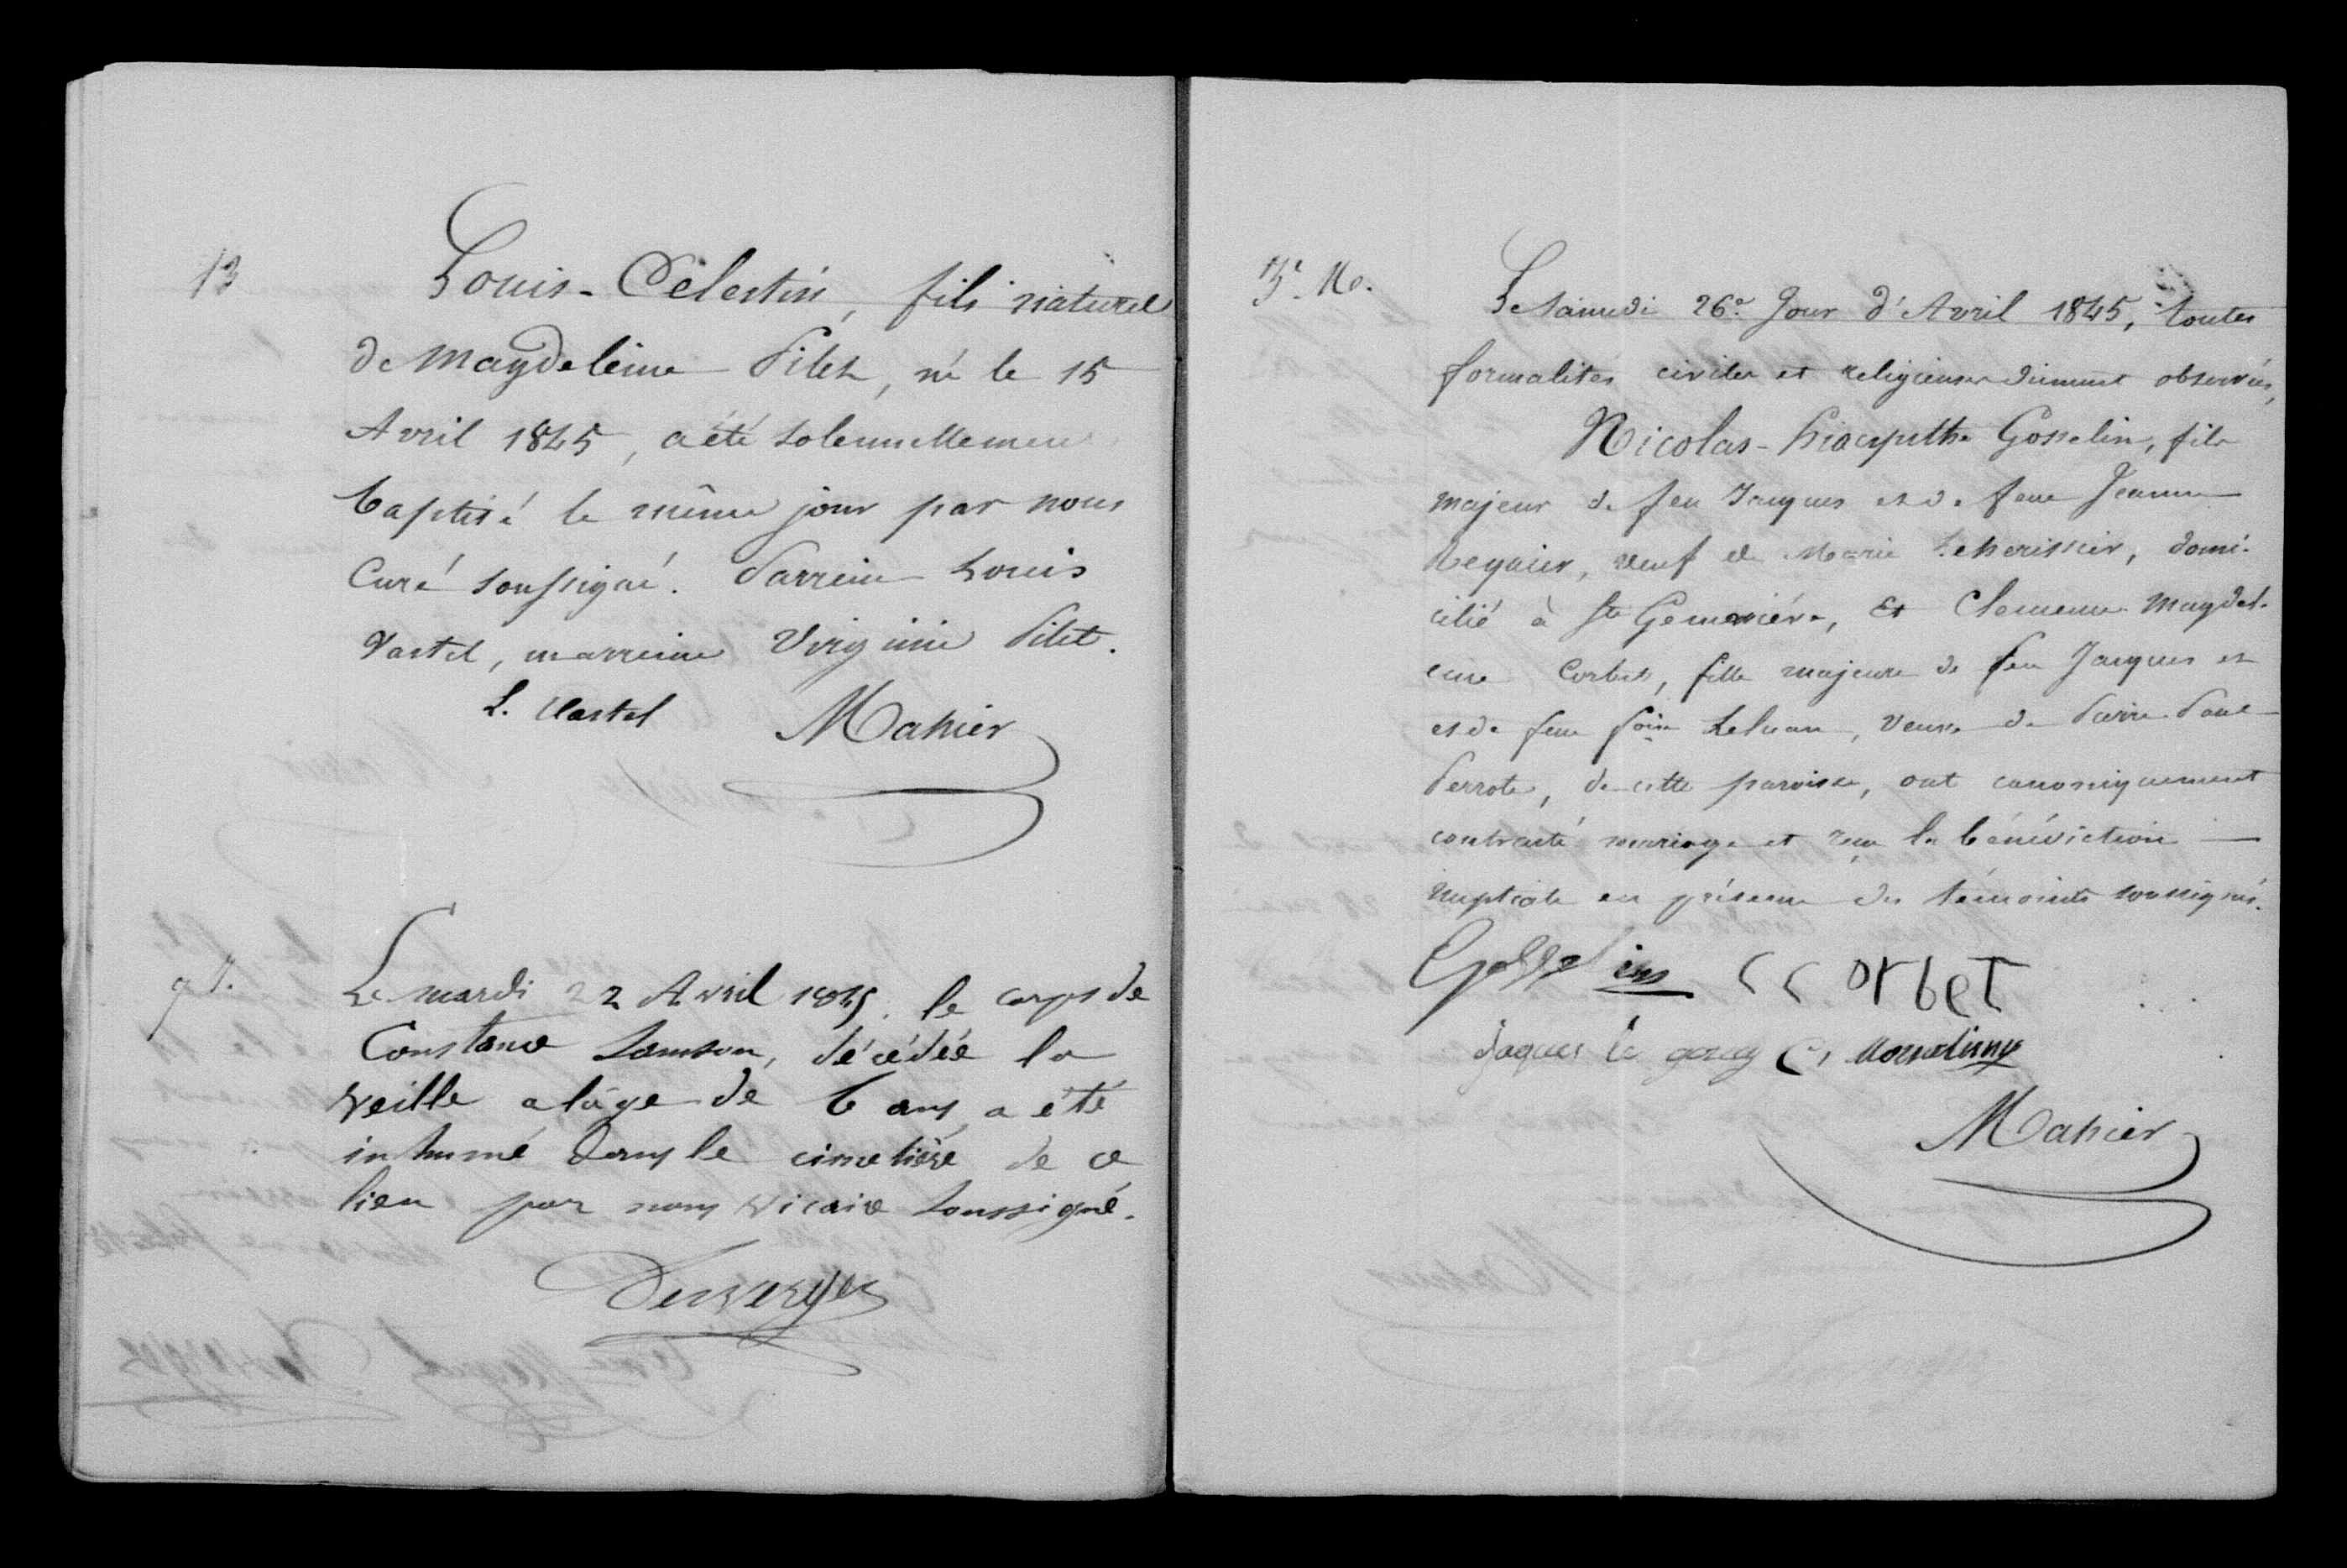 13
Louis-Célestin, fils naturel
de Magdeleine Pilet, né le 15
Avril 1845, a été solennellement
baptisé le même jour par nous
Curé soussigné. Parrein Louis
Vastel, marreine Virginie Pilet.
L. Vastel Mahier
9
Le mardi 22 Avril 1845. le corps de
Constance Samson, décédée la
veille a l'âge de 6 ans, a été
inhumé dans le cimetière de ce
lieu par nous vicaire soussigné.
Desverges
Le Samedi 26e Jour d'Avril 1845, toutes
formalités civiles et religieuses dûment observées,
Nicolas-hiacynthe Gosselin, fils
majeur de feu Jacques et de feue Jeanne
veuf de Marie Leherissier, domi-
cilié à Ste Geneviève, Et Clemence Magdel-
eine Corbet, fille majeure de feu Jacques et
et de feue veuve de Pierre-Paul
Perrote, de cette paroisse, ont canoniquement
contracté mariage et reçu la bénédiction
nuptiale en présence des témoins soussignés.
Gosselin CCorbet
Jaques le
Mahier